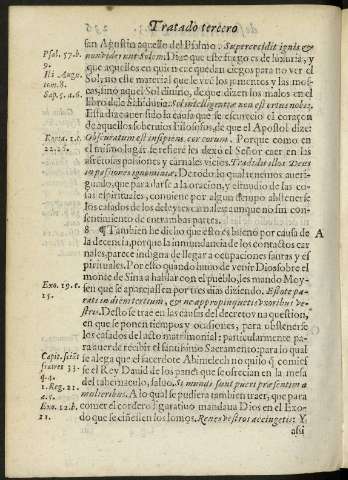 Tratado tercero
san Agustin aquello del Psalmo. Supercecidit ignis &
non viderunt Solem. Dize que este fuego es de luxuria, y
que aquellos en quien cae quedan ciegos para no ver el
Sol, no este material que le ven los jumentos y las mos-
cas, sino aquel Sol diuino, de que dizen los malos en el
libro de la Sabiduria. Sol intelligentiæ non est ortus nobis.
Esta dize auer sido la causa que se escurecio el coraçon
de aquellos soberuios Filosofos, de que el Apostol dize:
Obscuratum est insipiens cor eorum. Porque como en
el mismo lugar se refiere les dexo el Señor caer en las
afrentosas passiones y carnales vicios. Tradidit illos Deus
in passiones ignominiæ. De todo lo qual tenemos aueri-
guado, que para darse a la oracion, y estudio de las co-
sas espirituales, conuiene por algun tiempo abstenerse
los casados de los deleytes carnales aunque no sin con-
sentimiento de entrambas partes.
8 ¶ Tambien he dicho que esto es bueno por causa de
la decencia, porque la inmundancia de los contactos car
nales, parece indigna de llegar a ocupaciones santas y es
pirituales. Por esto quando huuo de venir Dios sobre el
monte de Sina a hablar con el pueblo, les mando Moy-
sen que se aparejassen por tres dias diziendo. Estote pa-
rati in diem tertium, & ne appropinquetis vxoribus ve-
stris. Desto se trae en las causas del decreto vna question,
en que se ponen tiempos y ocasiones, para abstenerse
los casados del acto matrimonial: particularmente pa-
ra auer de recibir el santissimo Sacramento: para lo qual
se alega que el sacerdote Abimelech no quiso q̃ comies
se el Rey Dauid de los panes que se ofrecian en la mesa
del tabernaculo, saluo. Si mundi sunt pueri præsertim a
mulieribus. A lo qual se pudiera tambien traer, que para
comer el cordero figuratiuo mandaua Dios en el Exo-
do que se ciñesen los lomos. Renes vestros accingetis: Y
assi
Psal. 57. b.
9.
Ibi Augu.
tom. 8.
Sap. 5. a. 6.
Roma. 1. c.
22. 26.
A
Exo. 19. c.
15.
33.
q. 4.
1. Reg. 21.
a. 5.
Exo. 12. b.
11.